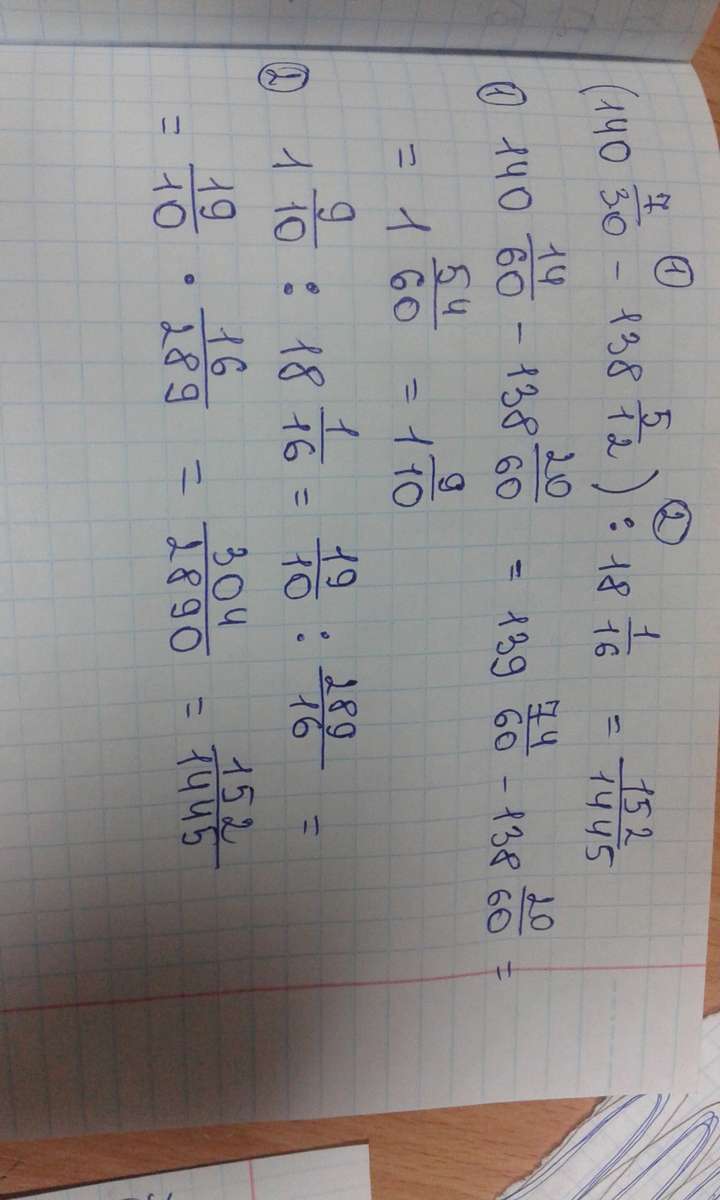 (140 7/30 - 138 5/12) : 18 1/16 = 152/1445
① ②
① 140 14/60 - 138 20/60 = 139 74/60 - 138 20/60 =
= 1 54/60 = 1 9/10
② 1 9/10 : 18 1/16 = 19/10 : 289/16 =
= 19/10 · 16/289 = 304/2890 = 152/1445